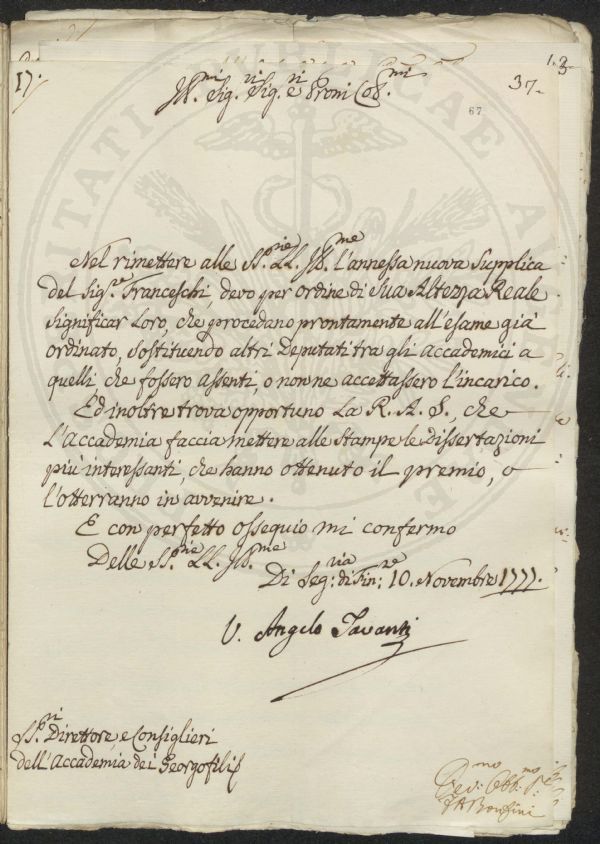 17.
37.
67
Ill.mi Sig.ri Sig.ri e Proni Col.mi
Nel rimettere alle SS.rie LL. Ill.me l'annessa nuova Supplica
del Sig.r Franceschi, devo per ordine di Sua Altezza Reale
significar Loro, che procedano prontamente all'esame già
ordinato, sostituendo altri Deputati tra gli accademici a
quelli che fossero assenti, o non ne accettassero l'incarico.
Ed inoltre trova opportuno La R. A. S., che
L'Accademia faccia mettere alle Stampe le Dissertazioni
più interessanti, che hanno ottenuto il premio, o
l'otterranno in avvenire.
E con perfetto ossequio mi confermo
Delle SS.rie LL. Ill.me
Di Seg:ria di Fin:ze 10. Novembre 1777.
V. Angelo Tavanti
SS.ri Direttore e Consiglieri
dell'Accademia dei Georgofili